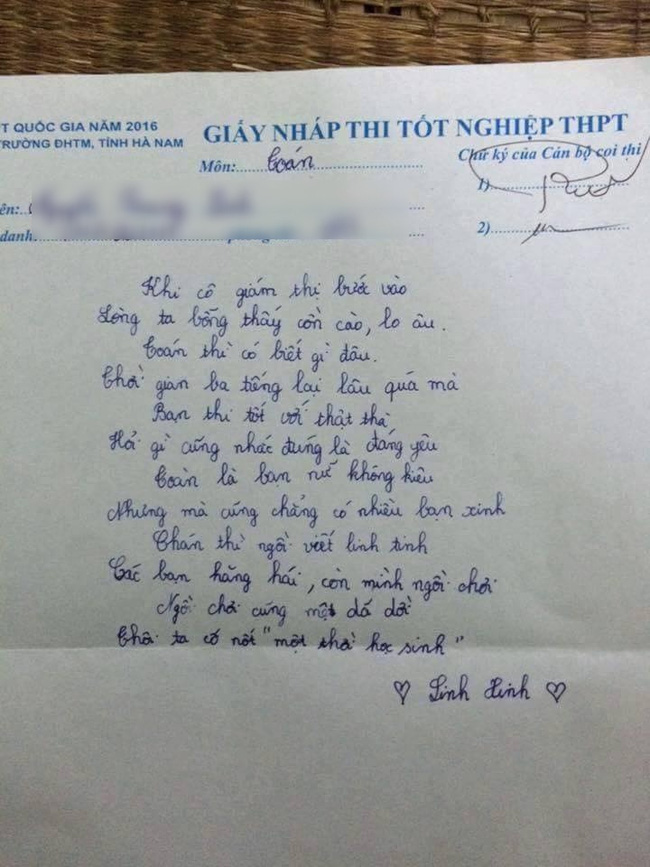 T QUỐC GIA NĂM 2016
TRƯỜNG ĐHTM, TỈNH HÀ NAM
GIẤY NHÁP THI TỐT NGHIỆP THPT
Môn: Toán
Chữ ký của Cán bộ coi thi
1)
ên:
danh
2)
Khi cô giám thị bước vào
Lòng ta bỗng thấy cồn cào, lo âu.
Toán thì có biết gì đâu.
Thời gian ba tiếng lại lâu quá mà
Bạn thi tốt với thật thà
Hỏi gì cũng nhắc đúng là đáng yêu
Toàn là bạn nữ không kiêu
Nhưng mà cũng chẳng có nhiều bạn xinh
Chán thì ngồi viết linh tinh
Các bạn hăng hái, còn mình ngồi chơi
Ngồi chơi cũng một dá dời
Thôi ta cố nốt "một thời học sinh"
♡ Linh Xinh ♡